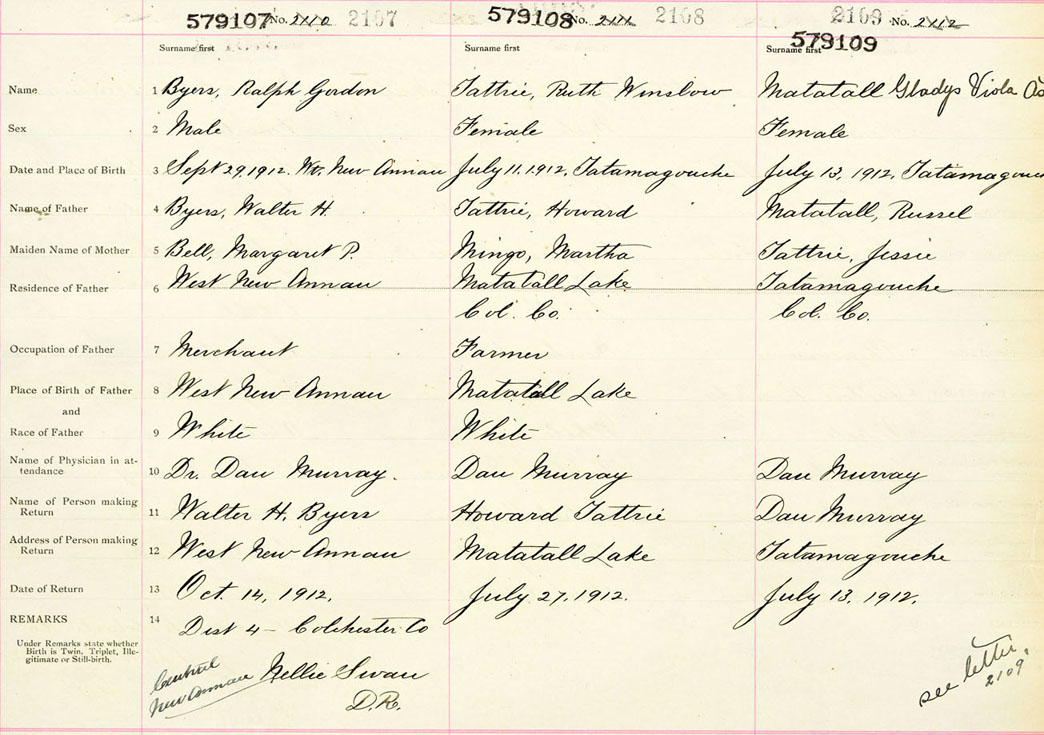 579107 No. 2110 2107 579108 No. 2111 2108 2109 No. 2112
Surname first Surname first Surname first 579109
Name 1 Byers, Ralph Gordon Tattrie, Ruth Winslow Matatall Gladys Viola
Sex 2 Male Female Female
Date and Place of Birth 3 Sept 29, 1912. W. New Annan July 11, 1912, Tatamagouche July 13, 1912, Tatamagouch
Name of Father 4 Byers, Walter H. Tattrie, Howard Matatall, Russel
Maiden Name of Mother 5 Bell, Margaret P. Mingo, Martha Tattrie, Jessie
Residence of Father 6 West New Annan Matatall Lake Tatamagouche
Col. Co. Col. Co.
Occupation of Father 7 Merchant Farmer
Place of Birth of Father 8 West New Annan Matatall Lake
and
Race of Father 9 White White
Name of Physician in at-
tendance 10 Dr. Dan Murray. Dan Murray Dan Murray
Name of Person making
Return 11 Walter H. Byers Howard Tattrie Dan Murray
Address of Person making
Return 12 West New Annan Matatall Lake Tatamagouche
Date of Return 13 Oct. 14, 1912. July 27, 1912. July 13, 1912.
REMARKS 14 Dist 4 - Colchester Co
Under Remarks state whether
Birth is Twin, Triplet, Ille-
gitimate or Still-birth.
Central
New Annan Nellie Swan
D.R.
see letter.
2109